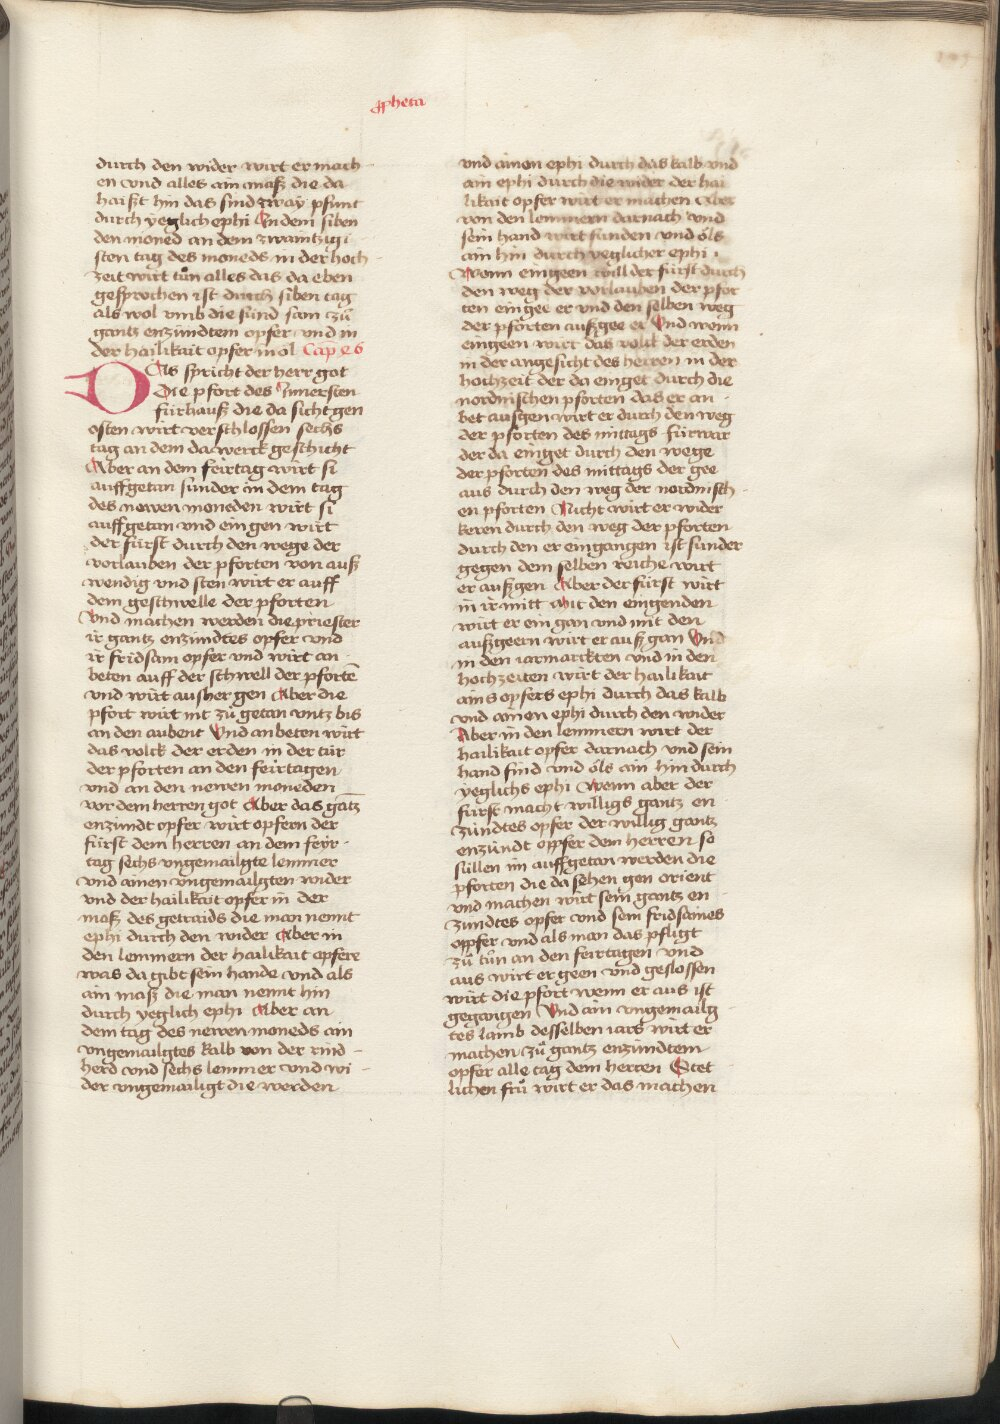 ꝓpheta
durch den wider wirt er mach
en vnd alles ain masz die da
haiszt hin das sind zway pfunt
durch yeglich ephi In dem siben
den moned an dem zwaintzigi
sten tag des moneds in der hoch
zeit wirt tůn alles das da eben
gesprochen ist durch siben tag
als wol vmb die sünd sam zů
gantz enzündtem opfer vnd in
der hailikait opfer in öl Cap 46
DAs spricht der herr got
Die pfort des Innersten
fürhausz die da sicht gen
osten wirt verschlossen sechs
tag an dem da werck geschicht
Aber an dem feirtag wirt si
auffgetan sunder in dem tag
des newen moneden wirt si
auffgetan vnd ein gen wirt
der fürst durch den wege der
vorlauben der pforten von ausz
wendig vnd sten wirt er auff
dem geschwelle der pforten
Vnd machen werden die priester
ir gantz enzündtes opfer vnd
ir fridsam opfer vnd wirt an
beten auff der schwell der pfortē
vnd wirt aus her gen Aber die
pfort wirt nit zů getan vntz bis
an den aubent Vnd an beten wirt
das volck der erden in der tür
der pforten an den feirtagen
vnd an den newen moneden
vor dem herren got Aber das gātz
enzündt opfer wirt opfern der
fürst dem herren an dem feyr
tag sechs vngemailgte lemmer
vnd ainen vngemailgten wider
vnd der hailikait opfer in der
masz des getraids die man nennt
ephi durch den wider Aber in
den lemmern der hailikait opfere
was da gibt sein hande vnd als
ain masz die man nennt hin
durch yeglich ephi Aber an
dem tag des newen moneds ain
vngemailgtes kalb von der rind
herd vnd sechs lemmer vnd wi
der vngemailigt die werden
vnd ainen ephi durch das kalb vnd
ain ephi durch die wider der hai
likait opfer wirt er machen Aber
von den lemmern darnach vnd
sein hand wirt funden vnd öls
ain hin durch yeglicher ephi
Wenn eingeen will der fürst durch
den weg der vorlauben der pfor
ten eingee er vnd den selben weg
der pforten auszgee er Vnd wenn
eingeen wirt das volck der erden
in der angesicht des herren in der
hochzeit der da einget durch die
nordnischen pforten das er an
bet ausgen wirt er durch den weg
der pforten des mittags fürwar
der da einget durch den wege
der pforten des mittags der gee
aus durch den weg der nordnisch
en pforten Nicht wirt er wider
keren durch den weg der pforten
durch den er eingangen ist sunder
gegen dem selben reiche wirt
er auszgen Aber der fürst wirt
in ir mitt Mit den eingenden
wirt er ein gan vnd mit den
auszgeern wirt er ausz gan Vnd
in den iarmarckten vnd in den
hochzeiten wirt der hailikait
ains opfers ephi durch das kalb
vnd ainen ephi durch den wider
Aber in den lemmern wirt der
hailikait opfer darnach vnd sein
hand find vnd öls ain hin durch
yeglichs ephi Wenn aber der
fürst macht willigs gantz en
zündtes opfer der willig gantz
enzündt opfer dem herren so
süllen im auffgetan werden die
pforten die da sehen gen orient
vnd machen wirt sein gantz en
zundtes opfer vnd sein fridsames
opfer vnd als man das pfligt
zů tůn an den feirtagen vnd
aus wirt er geen vnd geslossen
wirt die pfort wenn er aus ist
gegangen Vnd ain vngemailg
tes lamb desselben iars wirt er
machen zů gantz enzündtem
opfer alle tag dem herren Stet
lichen frů wirt er das machen